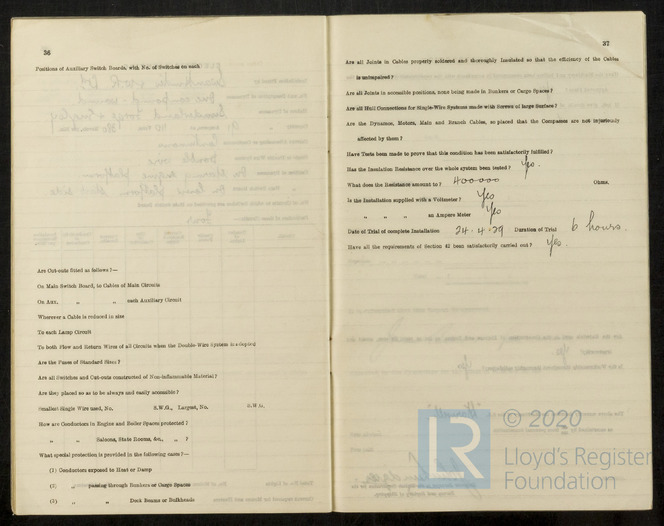 36
Positions of Auxiliary Switch Boards, with No. of Switches on each
Are Cut-outs fitted as follows?—
On Main Switch Board, to Cables of Main Circuits
On Aux. „ „ each Auxiliary Circuit
Wherever a Cable is reduced in size
To each Lamp Circuit
To both Flow and Return Wires of all Circuits when the Double-Wire System is adopted
Are the Fuses of Standard Sizes?
Are all Switches and Cut-outs constructed of Non-inflammable Material?
Are they placed so as to be always and easily accessible?
Smallest Single Wire used, No. S.W.G., Largest, No. S.W.G.
How are Conductors in Engine and Boiler Spaces protected?
„ „ Saloons, State Rooms, &c., „ ?
What special protection is provided in the following cases?—
(1) Conductors exposed to Heat or Damp
(2) „ passing through Bunkers or Cargo Spaces
(3) „ „ Deck Beams or Bulkheads
37
Are all Joints in Cables properly soldered and thoroughly Insulated so that the efficiency of the Cables
is unimpaired?
Are all Joints in accessible positions, none being made in Bunkers or Cargo Spaces?
Are all Hull Connections for Single-Wire Systems made with Screws of large Surface?
Are the Dynamos, Motors, Main and Branch Cables, so placed that the Compasses are not injuriously
affected by them?
Have Tests been made to prove that this condition has been satisfactorily fulfilled?
Has the Insulation Resistance over the whole system been tested? Yes.
What does the Resistance amount to? 400000 Ohms.
Is the Installation supplied with a Voltmeter? Yes
„ „ „ an Ampere Meter Yes
Date of Trial of complete Installation 24.4.29 Duration of Trial 6 hours.
Have all the requirements of Section 42 been satisfactorily carried out? Yes.
© 2020
LR
Lloyd's Register
Foundation